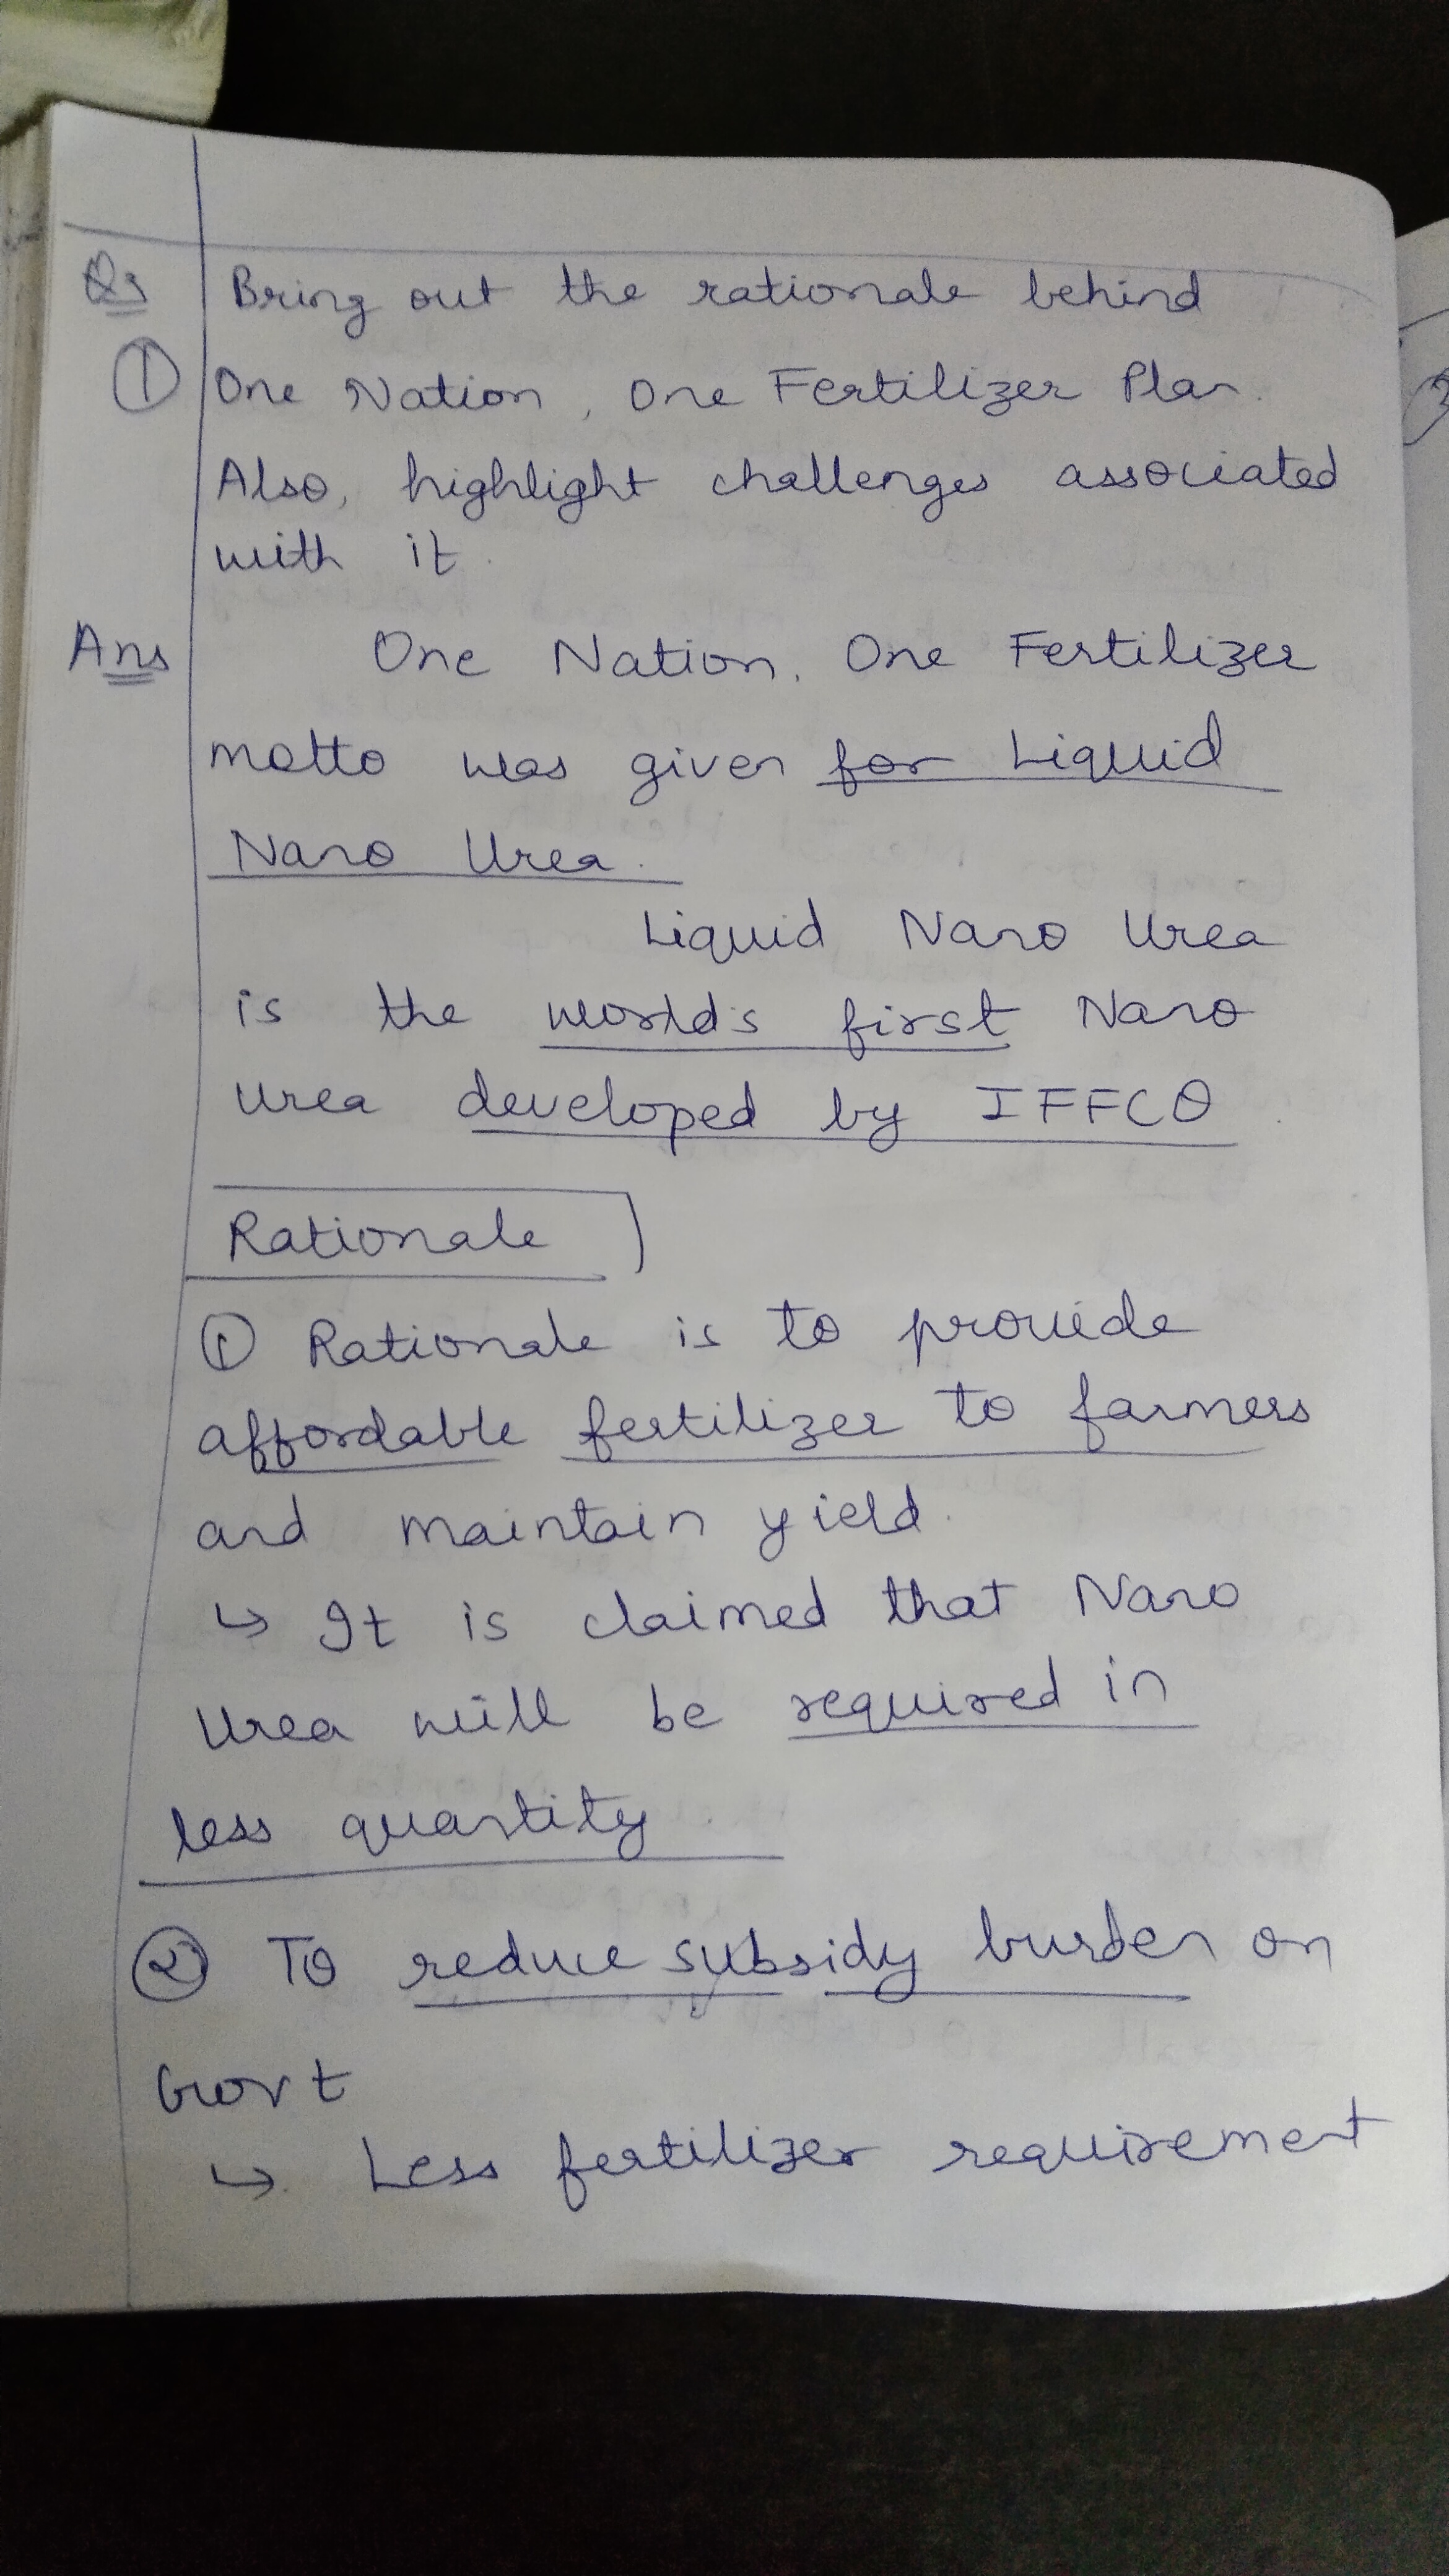 Qs Bring out the rationale behind
① One Nation, One Fertilizer Plan.
Also, highlight challenges associated
with it.
Ans One Nation, One Fertilizer
motto was given for Liquid
Nano Urea.
Liquid Nano Urea
is the world's first Nano
Urea developed by IFFCO.
Rationale
① Rationale is to provide
affordable fertilizer to farmers
and maintain yield.
↳ It is claimed that Nano
Urea will be required in
less quantity.
② To reduce subsidy burden on
Govt
↳ Less fertilizer requirement